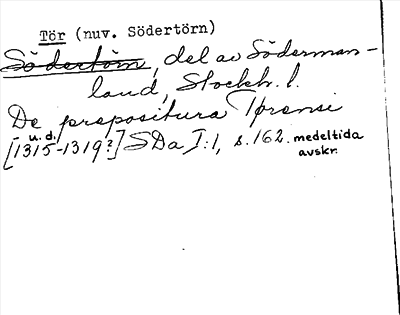 Tör (nuv. Södertörn)
Södertörn, del av Söderman-
land, Stockh. l.
De prepositura Thørensi
u.d.
[1315-1319?] SDa I:1, s. 162. medeltida
avskr.